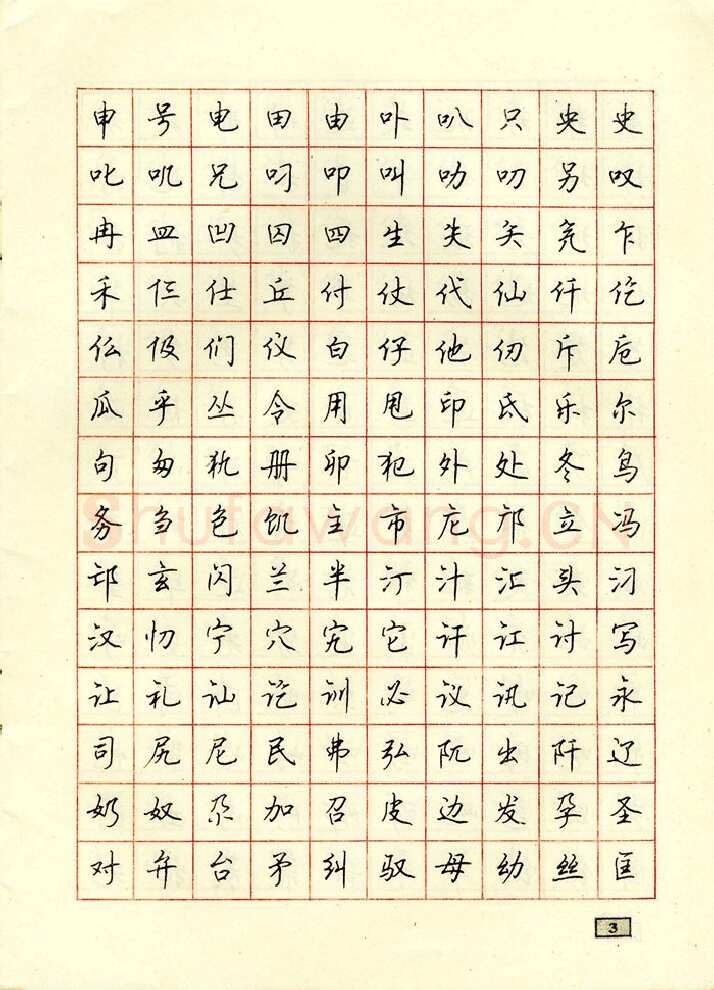 申号电田由卟叭只央史
叱叽兄叼叩叫叻叨另叹
冉皿凹囚四生失矢尧乍
禾仨仕丘付仗代仙仟仡
仫伋们仪白仔他仞斥卮
瓜乎丛令用甩印氐乐尔
句匆犰册卯犯外处冬鸟
务刍色饥主市庀邝立冯
邙玄闪兰半汀汁汇头汈
汉忉宁穴宄它讦讧讨写
让礼讪讫训必议讯记永
司尻尼民弗弘阢出阡辽
奶奴尕加召皮边发孕圣
对弁台矛纠驭母幼丝匡
Shufawang.CN
3